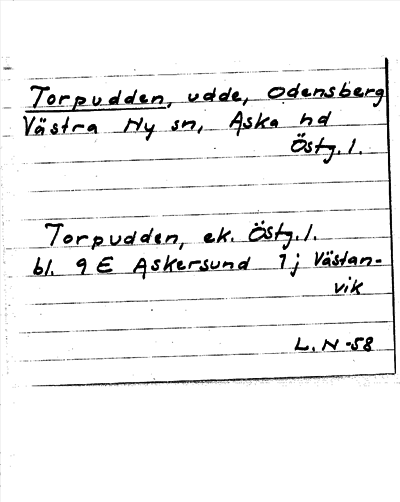 Torpudden, udde, Odensberg
Västra Ny sn, Aska hd
Östg.l.
Torpudden, ek. Östg.l.
bl. 9 E Askersund 1j Västan-
vik
L. N -58